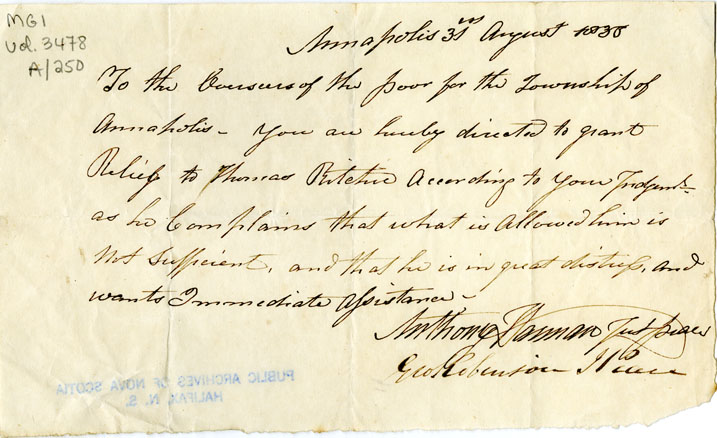 MG1
Vol. 3478
A/250
Annapolis 31st August 1838
To the Overseers of the poor for the Township of
Annapolis - You are hereby directed to grant
Relief to Thomas Ritchie According to Your Judgmt
as he Complains that what is Allowed him is
Not Sufficient, and that he is in great distress, and
wants Immediate Assistance -
Anthony Just peace
Geo Robinson J Peace
PUBLIC ARCHIVES OF NOVA SCOTIA
HALIFAX, N. S.